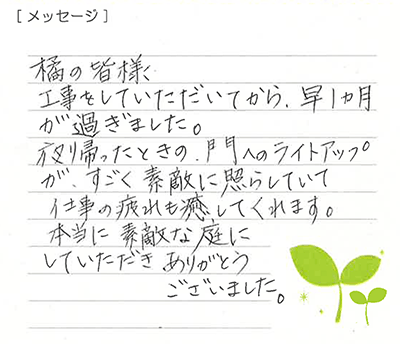 [メッセージ]
橘の皆様、
工事をしていただいてから、早1カ月
が過ぎました。
夜り帰ったときの、門へのライトアップ
が、すごく素敵に照らしていて
仕事の疲れも癒してくれます。
本当に素敵な庭に
していただきありがとう
ございました。